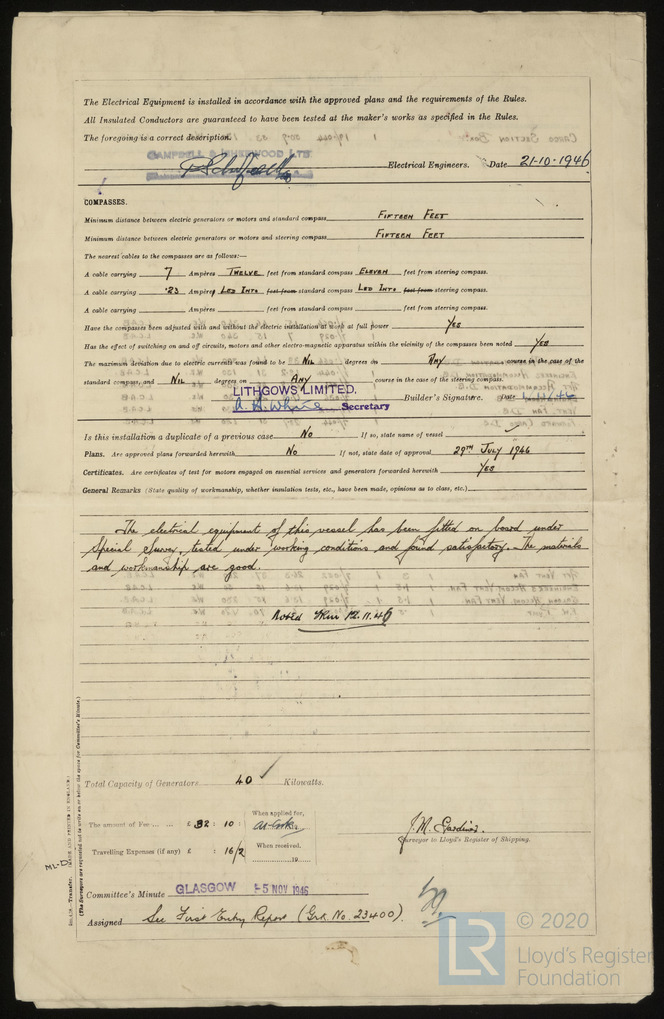 The Electrical Equipment is installed in accordance with the approved plans and the requirements of the Rules.
All Insulated Conductors are guaranteed to have been tested at the maker's works as specified in the Rules.
The foregoing is a correct description.
Electrical Engineers. Date 21-10-1946
COMPASSES.
Minimum distance between electric generators or motors and standard compass FIFTEEN FEET
Minimum distance between electric generators or motors and steering compass FIFTEEN FEET
The nearest cables to the compasses are as follows:—
A cable carrying 7 Ampères TWELVE feet from standard compass ELEVEN feet from steering compass.
A cable carrying .23 Ampères LED INTO feet from standard compass LED INTO feet from steering compass.
A cable carrying Ampères feet from standard compass feet from steering compass.
Have the compasses been adjusted with and without the electric installation at work at full power YES
Has the effect of switching on and off circuits, motors and other electro-magnetic apparatus within the vicinity of the compasses been noted YES
The maximum deviation due to electric currents was found to be NIL degrees on ANY course in the case of the
standard compass, and NIL degrees on ANY course in the case of the steering compass.
LITHGOWS LIMITED.
Secretary Builder's Signature. Date
Is this installation a duplicate of a previous case No If so, state name of vessel
Plans. Are approved plans forwarded herewith No If not, state date of approval 29TH JULY 1946
Certificates. Are certificates of test for motors engaged on essential services and generators forwarded herewith YES
General Remarks (State quality of workmanship, whether insulation tests, etc., have been made, opinions as to class, etc.)
The electrical equipment of this vessel has been fitted on board under
Special Survey, tested under working conditions and found satisfactory. The materials
and workmanship are good.
Noted 12.11.46
Total Capacity of Generators 40 Kilowatts.
The amount of Fee ... ... £ 32 : 10 : When applied for, 19
Travelling Expenses (if any) £ : 16/2 When received, 19
J.M. Gardiner.
Surveyor to Lloyd's Register of Shipping.
Committee's Minute GLASGOW 5 NOV 1946
Assigned See First Entry Report (Grk. No. 23400).
(The Surveyors are requested not to write on or below the space for Committee's Minute.)
© 2020
LR Lloyd's Register
Foundation